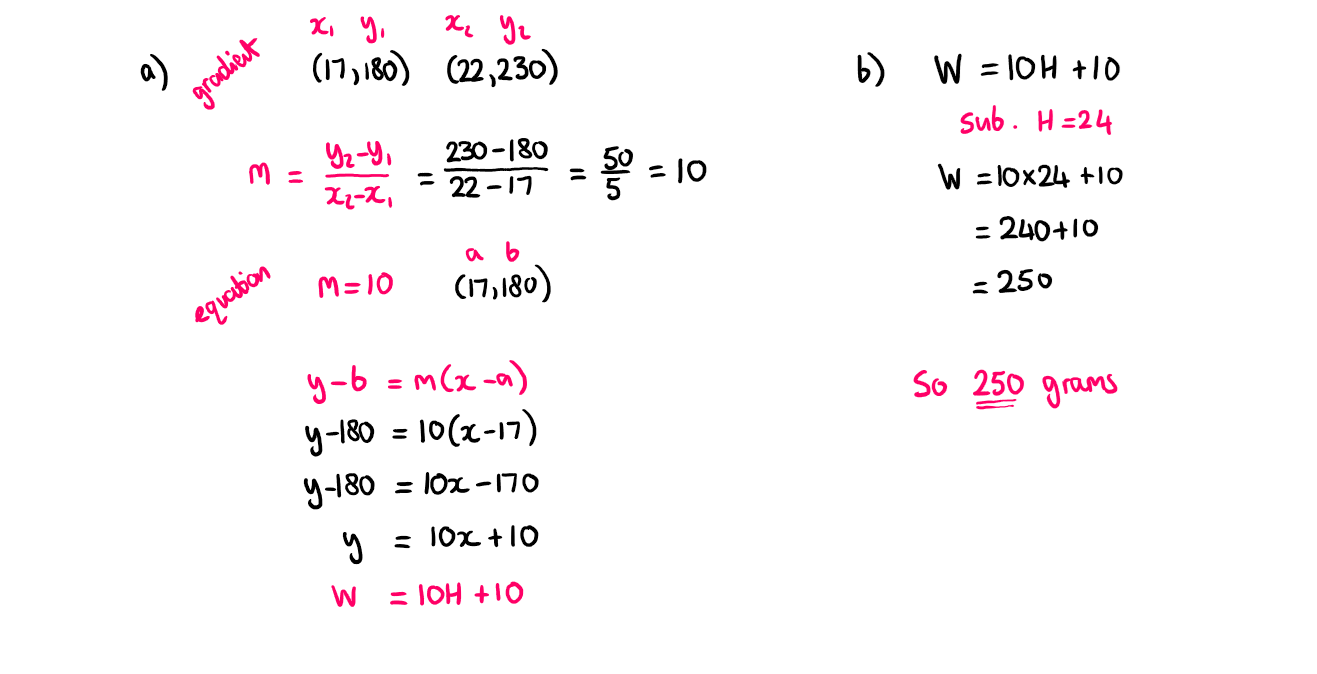 a) gradient
x₁ y₁ x₂ y₂
(17,180) (22,230)
m = y₂-y₁/x₂-x₁ = 230-180/22-17 = 50/5 = 10
equation
a b
m=10 (17,180)
y-b = m(x-a)
y-180 = 10(x-17)
y-180 = 10x-170
y = 10x+10
W = 10H+10
b) W = 10H+10
sub. H=24
W = 10×24+10
= 240+10
= 250
So 250 grams